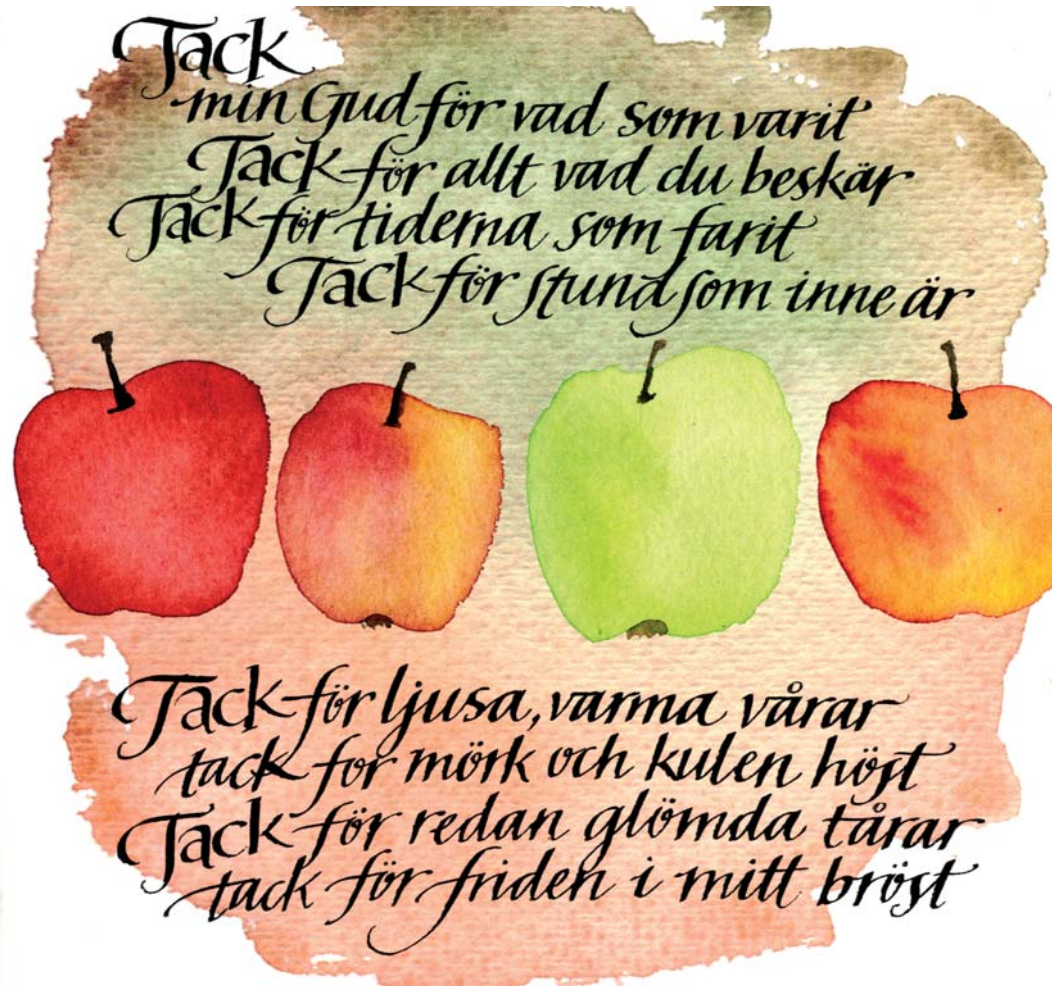 Tack
min Gud för vad som varit
Tack för allt vad du beskär
Tack för tiderna som farit
Tack för stund som inne är
Tack för ljusa, varma vårar
tack for mörk och kulen höst
Tack för redan glömda tårar
tack för friden i mitt bröst